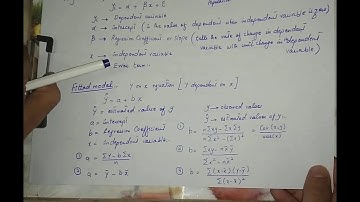 Y = α + βx + ε
Y → Dependent variable
α → Intercept (is the value of dependent when independent variable is zero)
β → Regression Coefficient or Slope (tells the rate of change in dependent
variable with unit change in independent
variable)
x → Independent variable
Error term.
Fitted model:- Y on x equation [Y dependent on x]
ŷ = a + bx
ŷ = estimated value of y
a = intercept
b = Regression Coefficient
x = Independent variable
① a = Σy - bΣx / n
② a = ȳ - bx̄
y → observed value
ŷ → estimated value of y
① b = nΣxy - ΣxΣy / nΣx² - (Σx)² = Cov(x,y) / var(x)
② b = Σxy - nx̄ȳ / Σx² - nx̄²
③ b = Σ(x-x̄)(y-ȳ) / Σ(x-x̄)²